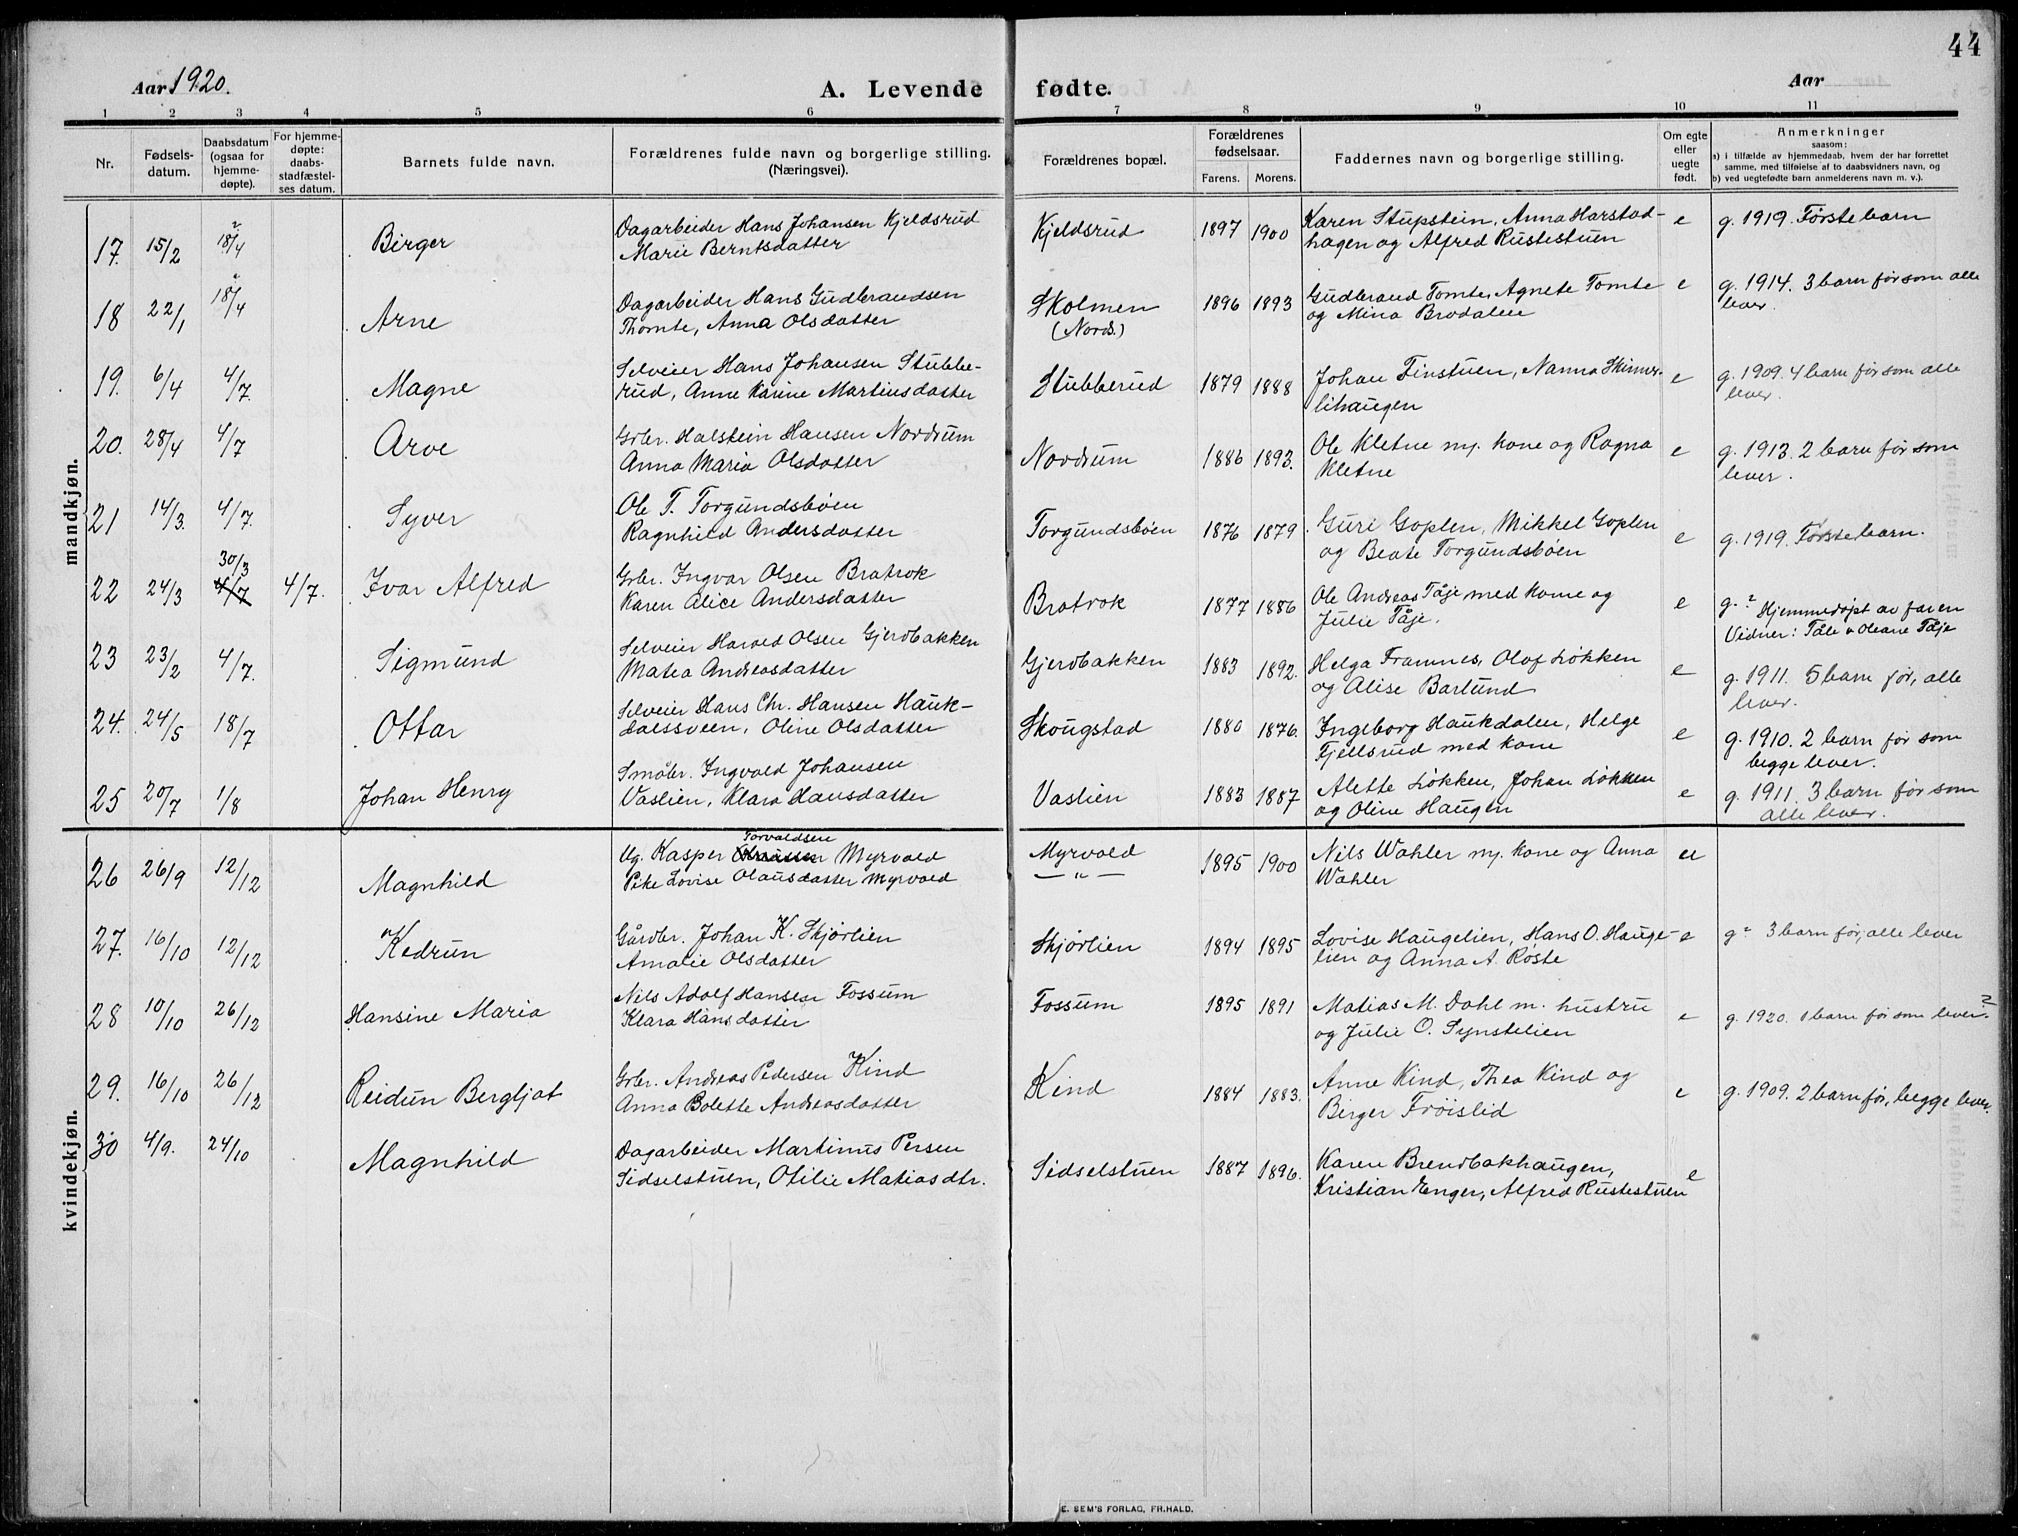 44
Aar 1920.
A. Levende fødte.
Aar
1 2 3 4 5 6 7 8 9 10 11
Nr.
Fødsels-
datum.
Daabsdatum
(ogsaa for
hjemme-
døpte).
For hjemme-
døpte:
daabs-
stadfæstel-
ses datum.
Barnets fulde navn.
Forældrenes fulde navn og borgerlige stilling.
(Næringsvei).
Forældrenes bopæl.
Forældrenes
fødselsaar.
Farens. Morens.
Faddernes navn og borgerlige stilling.
Om egte
eller
uegte
født.
Anmerkninger
saasom:
a) i tilfælde av hjemmedaab, hvem der har forrettet
samme, med tilføielse af to daabsvidners navn, og
b) ved uegtefødte barn anmelderens navn m. v.).
mandkjøn.
17. 15/2 18/4 Birger
Dagarbeider Hans Johansen Kjeldsrud
Marie Berntsdatter
Kjeldsrud 1897 1900
Karen Stupstein, Anna Harstad-
hagen og Alfred Rustestuen
e g. 1919. Første barn
18 22/1 18/4 Arne
Dagarbeider Hans Gudbrandsen
Thomte, Anna Olsdatter
Skolmen
(Nords.)
1896 1893
Gudbrand Tomte, Agnete Tomte
og Mina Brodalen
e g. 1914. 3 barn før som alle
lever.
19. 6/4 4/7. Magne
Selveier Hans Johansen Stubbe-
rud, Anne Karine Martinsdatter
Stubberud 1879 1888
Johan Finstuen, Nanna Skinner-
lihaugen
e g. 1909. 4 barn før som alle
lever.
20. 28/4 4/7 Arve
Grbr. Halstein Hansen Nordrum
Anna Maria Olsdatter
Nordrum 1886 1893.
Ole Kletne m. kone og Ragna
Kletne
e g. 1913. 2 barn før som
lever.
21 14/3. 4/7. Syver
Ole T. Torgundsbøen
Ragnhild Andersdatter
Torgundsbøen 1876 1879
Guri Goplen, Mikkel Goplen
og Beate Torgundsbøen
e g. 1919. Første barn.
22 24/3 30/3 4/7 4/7. Ivar Alfred
Grbr. Ingvar Olsen Bratrok
Karen Alice Andersdatter
Bratrok 1877 1886
Ole Andreas Tåje med kone og
Julie Tåje.
e g. ? Hjemmedøpt av faren
Vidner: Tåle & Oleane Tåje
23 23/2 4/7. Sigmund
Selveier Harald Olsen Gjerdbakken
Matea Andreasdatter
Gjerdbakken 1883 1892.
Helga Framnes, Olaf Løkken
og Alise Barlund
e g. 1911. 5 barn før, alle
lever.
24. 24/5 18/7 Ottar
Selveier Hans Chr. Hansen Hauk-
dalssveen, Oline Olsdatter
Skougstad 1880 1876.
Ingeborg Haukdalen, Helge
Fjellsrud med kone
e g. 1910. 2 barn før som
begge lever.
25 20/7 1/8 Johan Henry
Småbr. Ingvald Johansen
Vaslien, Klara Hansdatter
Vaslien 1883 1887
Alette Løkken, Johan Løkken
og Oline Haugen
e g. 1911. 3 barn før som
alle lever.
kvindekjøn.
26 26/9 12/12 Magnhild
Torvaldsen
Ug. Kasper Myrvold
Pike Lovise Olausdatter Myrvold
Myrvold
— " —
1895 1900
Nils Wahler m. kone og Anna
Wahler
ue
27. 16/10 12/12 Kedrun
Gårdbr. Johan K. Skjørlien
Amalie Olsdatter
Skjørlien 1894 1895
Lovise Haugelien, Hans O. Hauge-
lien og Anna A. Røste
e g ? 3 barn før, alle lever
28 10/10 26/12 Hansine Maria
Nils Adolf Hansen Fossum
Klara Hansdatter
Fossum 1895 1891
Matias M. Dahl m. hustru
og Julie O. Synstelien
e g. 1920. 1 barn før som lever. ?
29. 16/10 26/12 Reidun Bergljot
Grbr. Andreas Pedersen Kind
Anna Bolette Andreasdatter
Kind 1884 1883.
Anne Kind, Thea Kind og
Birger Frøislid
e g. 1909. 2 barn før, begge lever.
30 4/9. 24/10 Magnhild
Dagarbeider Martinus Persen
Sidselstuen, Otilie Matiasdtr.
Sidselstuen 1887 1896.
Karen Brendbakhaugen,
Kristian Enger, Alfred Rustestuen
e
E. SEM'S FORLAG, FR.HALD.